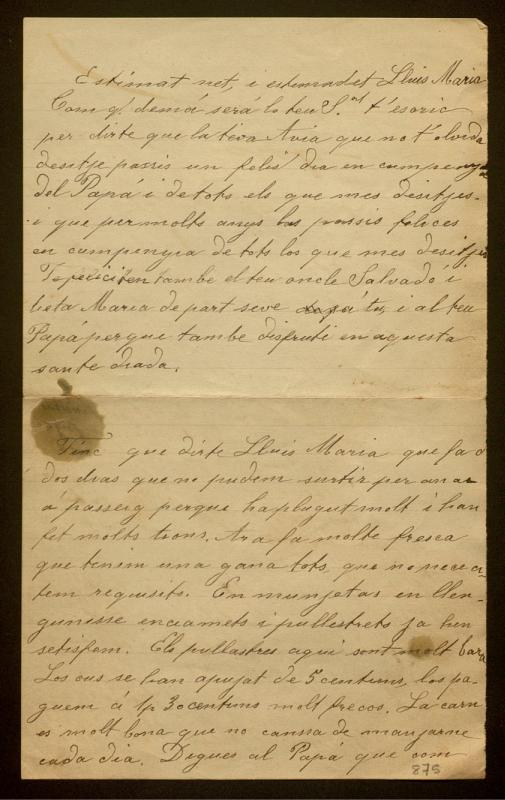 Estimat net, i estimadet Lluis Maria
Com q. demá será lo teu S.nt t'escric
per dirte que la teva Avia que no t'olvida
desitje passis un felis dia en cumpenyia
del Papá i de tots els que mes desitjes.
i que per molts anys los passis felices
en cumpenyia de tots los que mes desitjes
Te feliciten tambe el teu oncle Salvadó i
teta Maria de part seve á tu, i al teu
Papá perque tambe disfruti en aquesta
sante diada.
Tinc que dirte Lluis Maria que fa
dos dias que no pudem surtir per anar
á passeig perque ha plugut molt i han
fet molts trons. Ara fa molte fresca
que tenim una gana tots, que no nececi-
tem requisits. En munjetas en llen-
gunisse encamets i pullestrets ja hen
setisfem. Els pullastres aqui sont molt bara
Los ous se han apujat de 5 centims, los pa-
guem á 1 p 30 centims molt frecos. La carn
es molt bona que no canssa de manjarne
cada dia. Digues al Papá que com
875